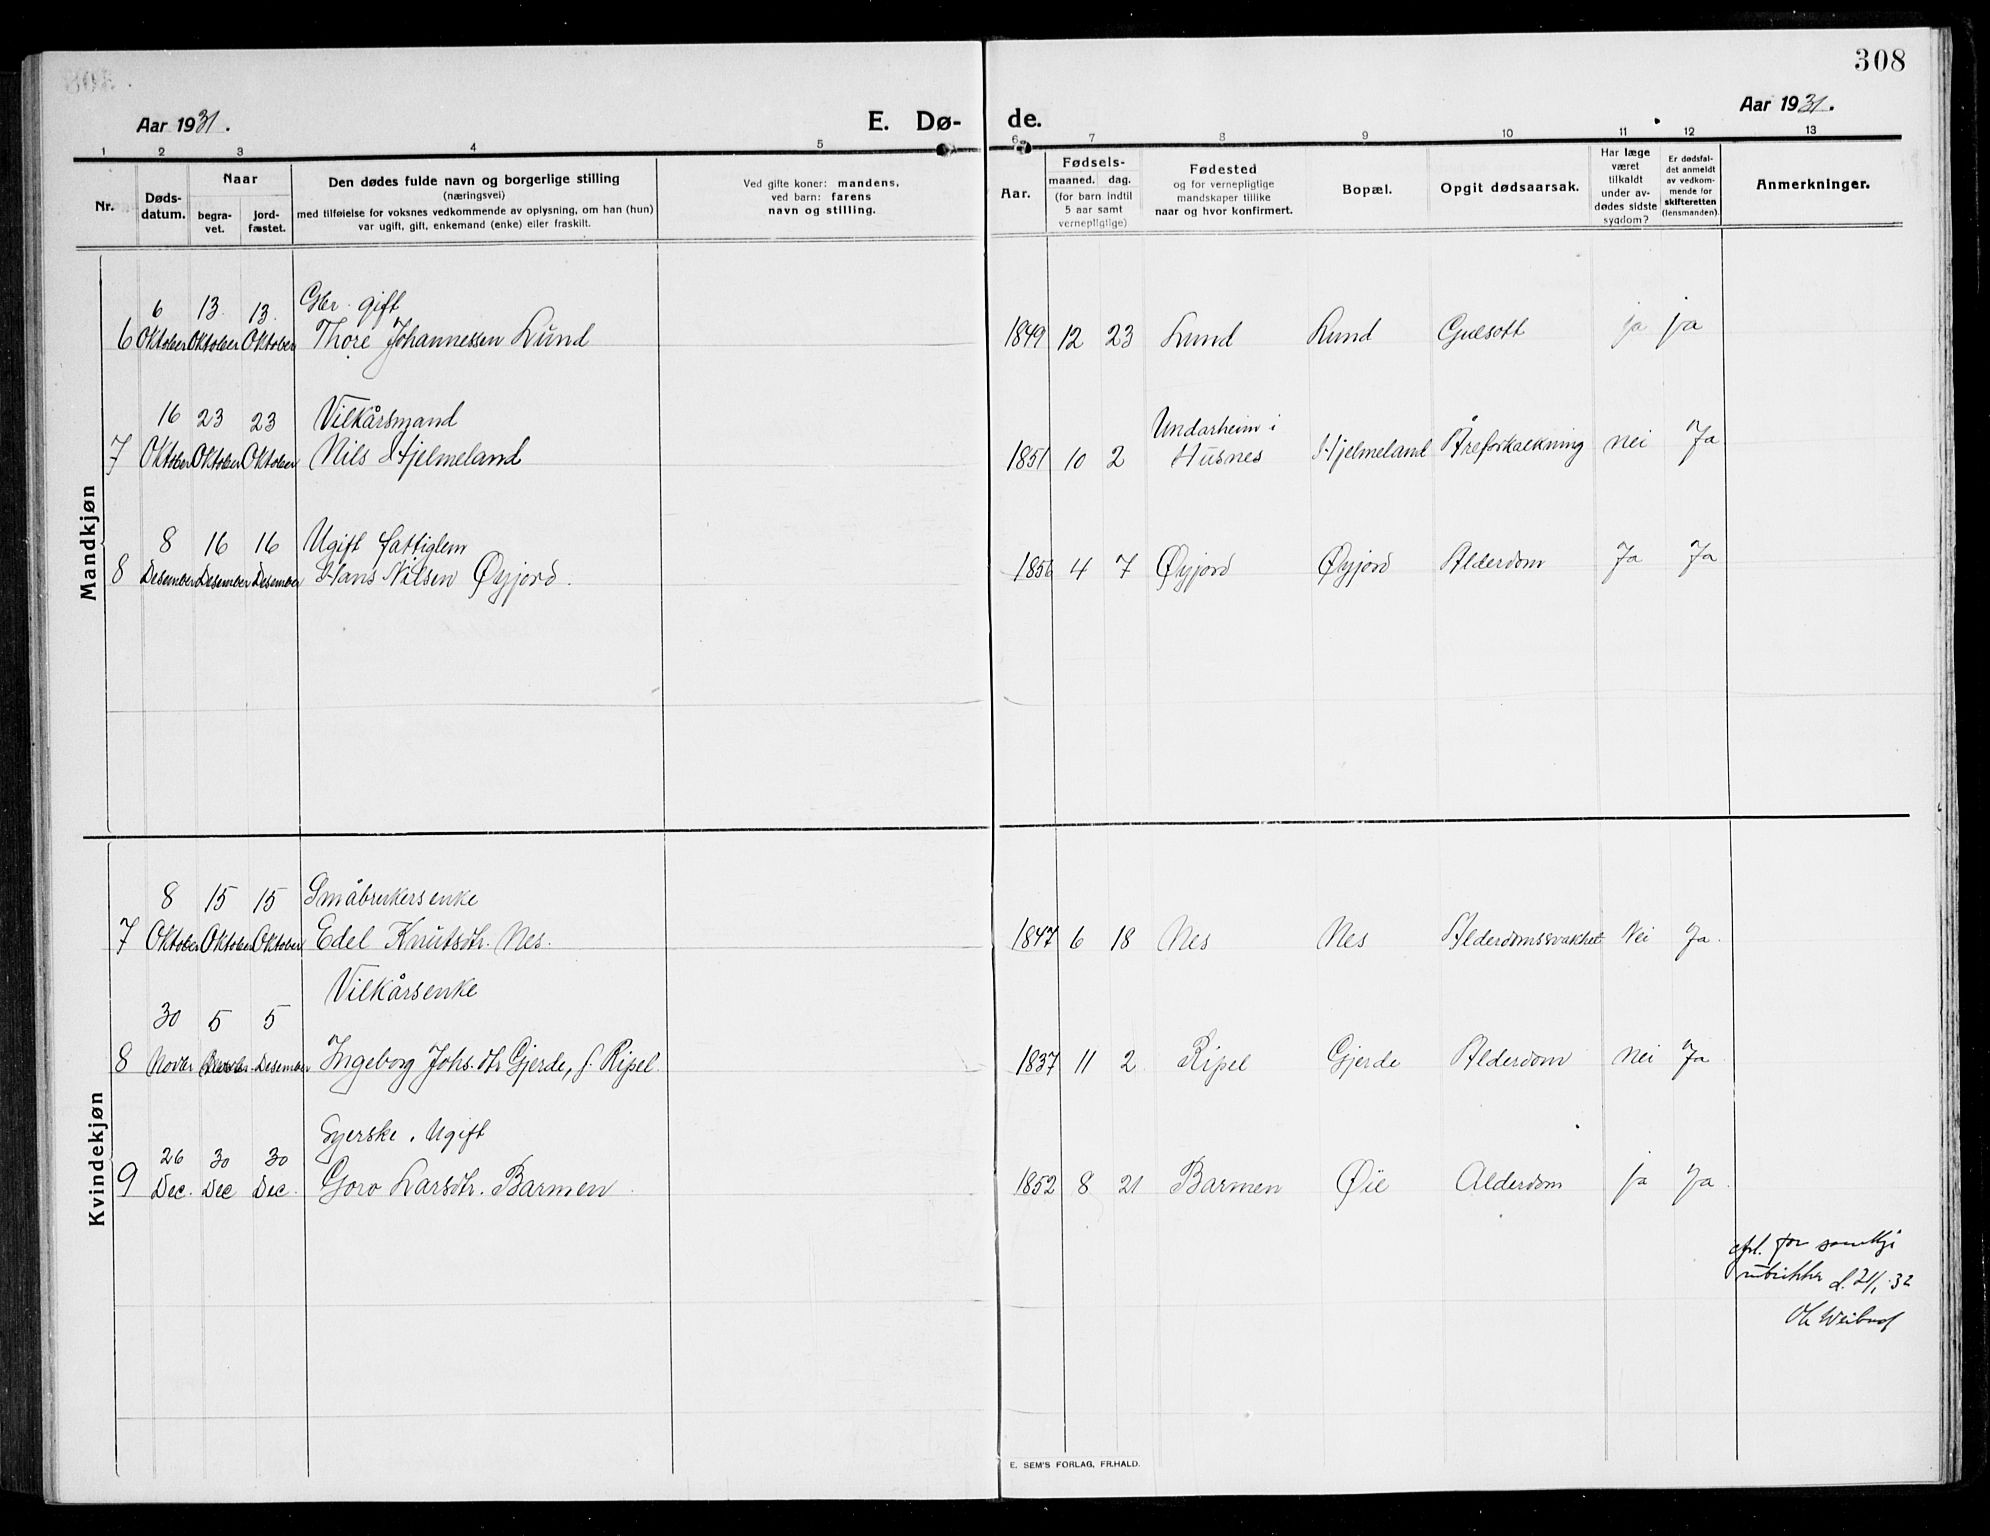 308
Aar 1931.
E. Dø-
de.
Aar 1931.
1 2 3 4 5 6 7 8 9 10 11 12 13
Nr.
Døds-
datum.
Naar
begra-
vet.
jord-
fæstet.
Den dødes fulde navn og borgerlige stilling
(næringsvei)
med tilføielse for voksnes vedkommende av oplysning, om han (hun)
var ugift, gift, enkemand (enke) eller fraskilt.
Ved gifte koner: mandens,
ved barn: farens
navn og stilling.
Aar.
Fødsels-
maaned. dag.
(for barn indtil
5 aar samt
vernepligtige)
Fødested
og for vernepligtige
mandskaper tillike
naar og hvor konfirmert.
Bopæl.
Opgit dødsaarsak.
Har læge
været
tilkaldt
under av-
dødes sidste
sygdom?
Er dødsfal-
det anmeldt
av vedkom-
mende for
skifteretten
(lensmanden).
Anmerkninger.
Mandkjøn
6 13 13. Gbr. gift
6 Oktober Oktober Oktober Thore Johannessen Lund 1849 12 23 Lund Lund Gulsott ja ja
16 23 23 Vilkårsmand Undarheim i
7 Oktober Oktober Oktober Nils Hjelmeland 1851 10 2 Husnes Hjelmeland Åreforkalkning nei Ja
8 16 16 Ugift fattiglem
8 Desember Desember Desember Hans Nilsen Øyjord. 1856 4 7 Øyjord Øyjord Alderdom Ja Ja
Kvindekjøn
8 15 15 Småbrukersenke
7 Oktober Oktober Oktober Edel Knutsdtr. Nes. 1847 6 18 Nes Nes Alderdomssvakhet Nei Ja.
Vilkårsenke
30 5 5
8 Novbr Desember Ingeborg Johs.dtr Gjerde, f. Ripel. 1837 11 2 Ripel Gjerde Alderdom Nei Ja
26 30 30 Syerske. Ugift
9 Dec. Dec Dec. Goro Larsdtr. Barmen. 1852 8 21 Barmen Øie Alderdom ja Ja.
for
rubrikker d. 21/1 32
E. SEM'S FORLAG, FR.HALD.